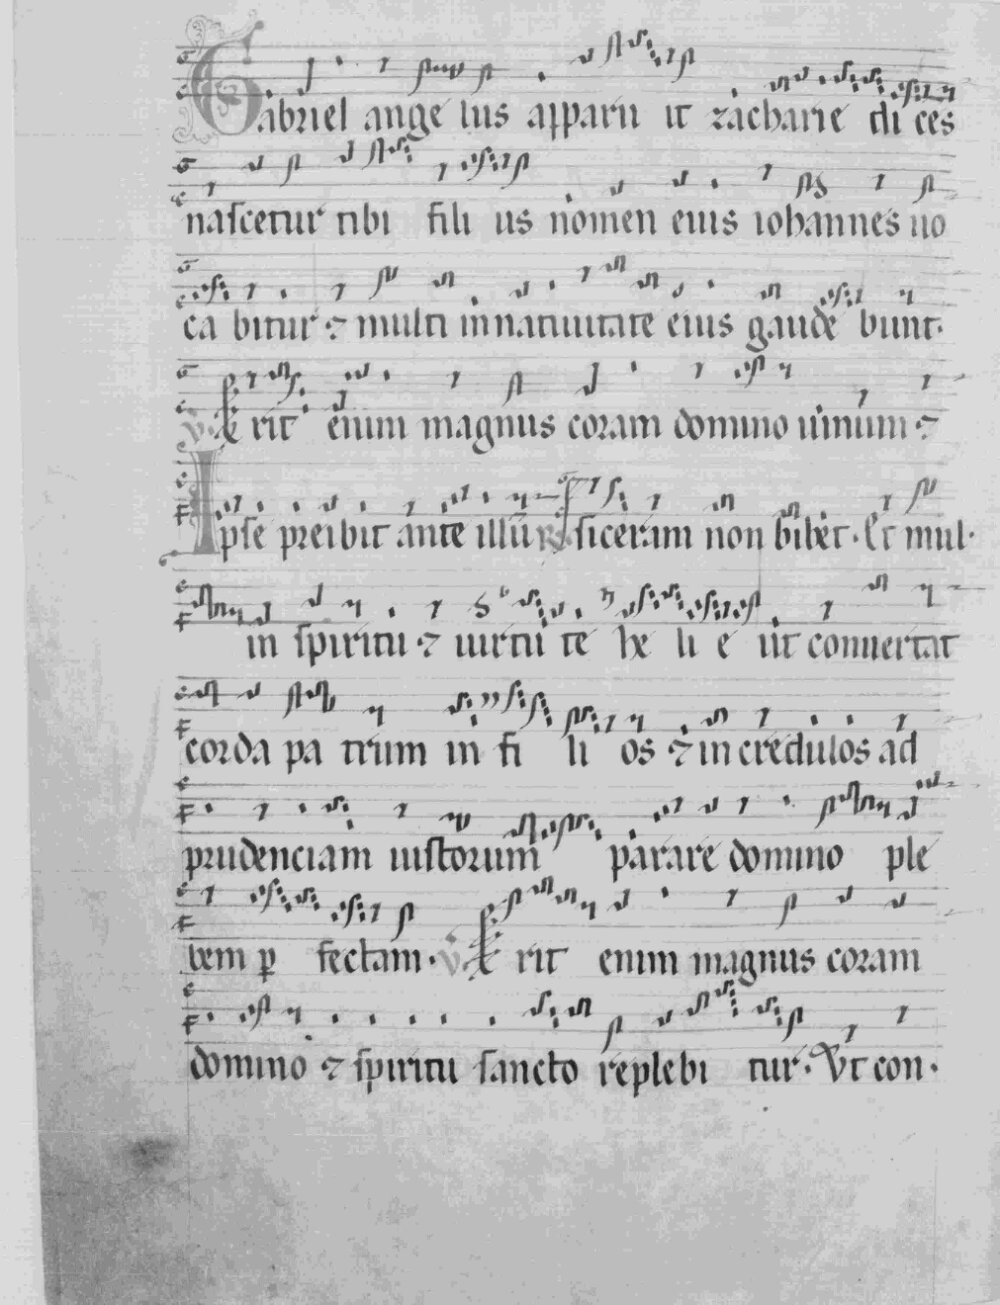 Gabriel ange lus apparu it zacharie di ces
nascetur tibi fili us nomen eius iohannes uo
ca bitur ⁊ multi in natiuitate eius gaude bunt.
V. Erit enim magnus coram domino uinum ⁊
Ipse preibit ante illū R. siceram non bibet. Et mul.
in spiritu ⁊ uirtu te he li e ut conuertat
corda pa trum in fi li os ⁊ in credulos ad
prudenciam iustorum parare domino ple
bem ꝑ fectam. V. Erit enim magnus coram
domino ⁊ spiritu sancto replebi tur. Vt con.